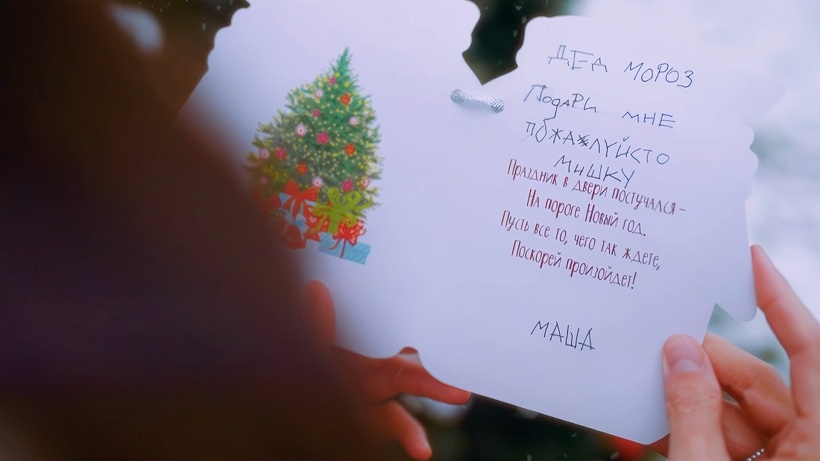 ДЕД МОРОЗ
ПОДАРИ МНЕ
ПОЖАЖЛУЙСТО
МИШКУ
Праздник в двери постучался –
На пороге Новый год.
Пусть все то, чего так ждете,
Поскорей произойдет!
МАША